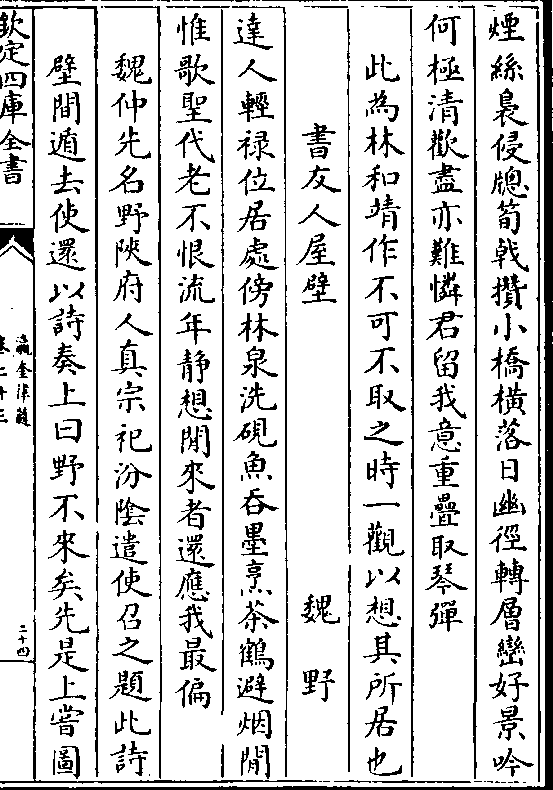 煙絲裊侵牕筍戟攢小橋橫落日幽徑轉層巒好景吟
何極清歡盡亦難憐君留我意重疊取琴彈
此為林和靖作不可不取之時一觀以想其所居也
書友人屋壁　魏野
達人輕祿位居處傍林泉洗硯魚吞墨烹茶鶴避烟閒
惟歌聖代老不恨流年靜想閒來者還應我最偏
魏仲先名野陝府人真宗祀汾陰遣使召之題此詩
壁間遁去使還以詩奏上曰野不來矣先是上嘗圖
欽定四庫全書
瀛奎律髓
卷二十三
二十四